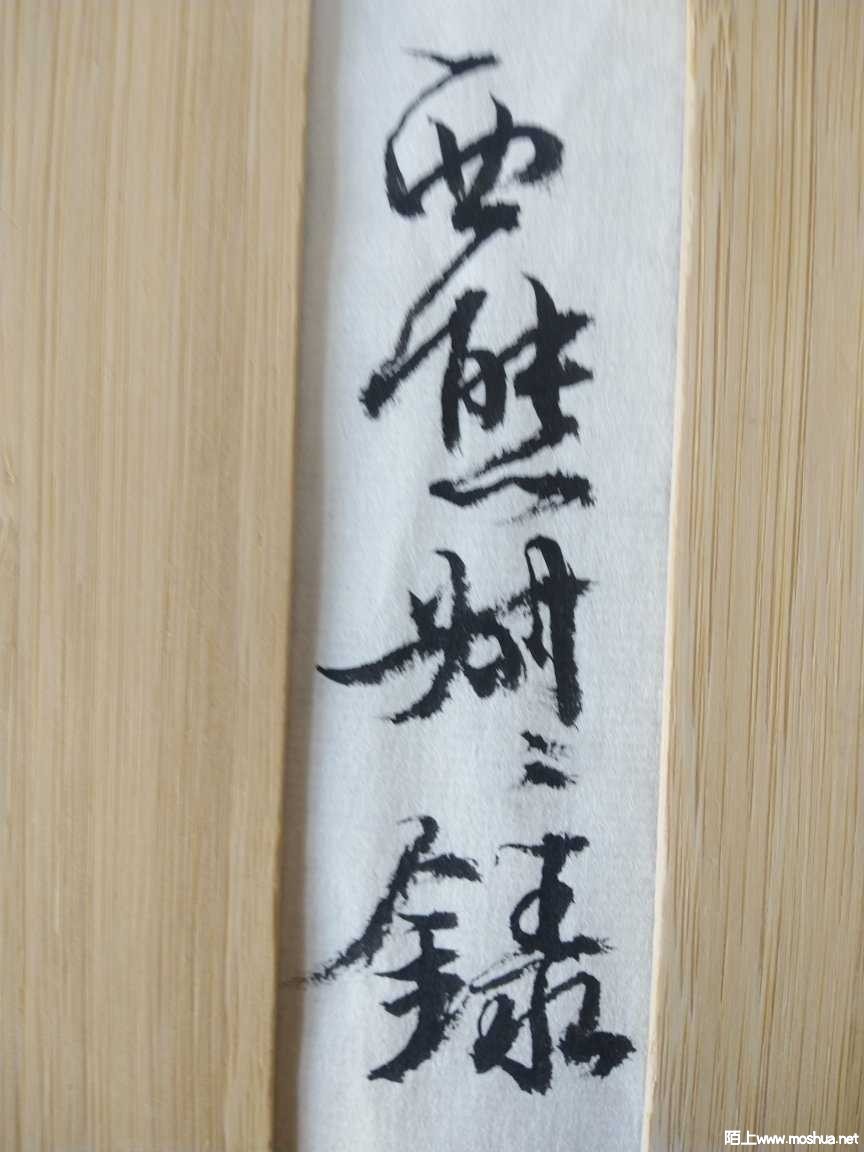 西熊别二録
陌上www.moshua.net